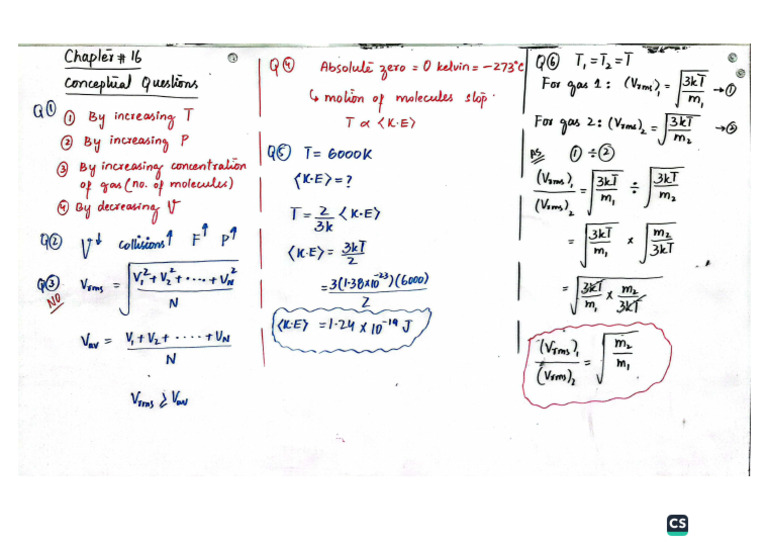 Chapter # 16
Conceptual Questions
Q① ① By increasing T
② By increasing P
③ By increasing concentration
of gas (no. of molecules)
④ By decreasing V
Q② V↓ collisions↑ F↑ P↑
Q③ Vrms = √((V₁² + V₂² + ..... + V_N²)/N)
NO
Vav = (V₁ + V₂ + ..... + V_N)/N
Vrms ≥ Vav
Q④ Absolute zero = 0 kelvin = -273°C
↳ motion of molecules stop.
T ∝ ⟨K.E⟩
Q⑤ T = 6000K
⟨K.E⟩ = ?
T = 2/3k ⟨K.E⟩
⟨K.E⟩ = 3kT/2
= 3(1.38×10⁻²³)(6000)/2
⟨K.E⟩ = 1.24 × 10⁻¹⁹ J
Q⑥ T₁ = T₂ = T
For gas 1: (Vrms)₁ = √(3kT/m₁) → ①
For gas 2: (Vrms)₂ = √(3kT/m₂) → ②
① ÷ ②
(Vrms)₁/(Vrms)₂ = √(3kT/m₁) ÷ √(3kT/m₂)
= √(3kT/m₁) × √(m₂/3kT)
= √(3kT/m₁ × m₂/3kT)
(Vrms)₁/(Vrms)₂ = √(m₂/m₁)
CS